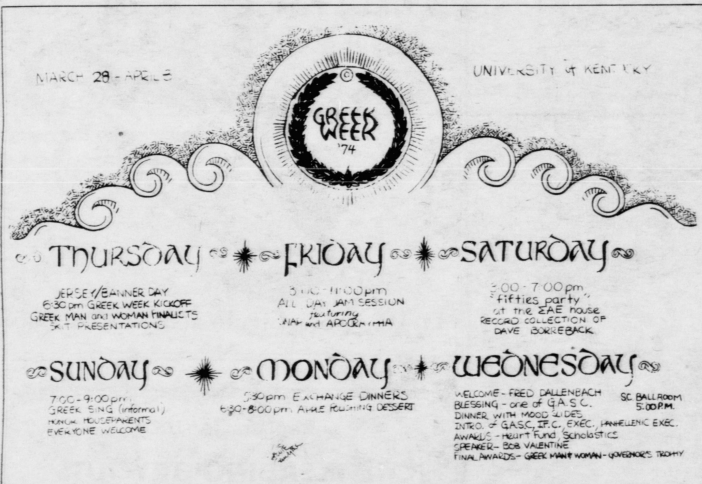 MARCH 28 - APRIL 3
UNIVERSITY of KENTUCKY
©
GREEK
WEEK
'74
THURSDAY
JERSEY/BANNER DAY
6:30 pm GREEK WEEK KICKOFF
GREEK MAN and WOMAN FINALISTS
SKIT PRESENTATIONS
FRIDAY
ALL DAY JAM SESSION
featuring
and APOCRYPHA
SATURDAY
3:00 - 7:00 pm
"fifties party"
at the ΣAE house
RECORD COLLECTION OF
DAVE BORREBACK
SUNDAY
7:00 - 9:00 pm
GREEK SING (informal)
HONOR HOUSEPARENTS
EVERYONE WELCOME
MONDAY
5:30 pm EXCHANGE DINNERS
6:30-8:00 pm APPLE POLISHING DESSERT
WEDNESDAY
WELCOME - FRED DALLENBACH
BLESSING - one of G.A.S.C.
DINNER WITH MOOD SLIDES
INTRO. of G.A.S.C, I.F.C. EXEC., PANHELLENIC EXEC.
AWARDS - Heart Fund, Scholastics
SPEAKER - BOB VALENTINE
FINAL AWARDS - GREEK MAN & WOMAN - GOVERNOR'S TROPHY
SC BALLROOM
5:00 P.M.